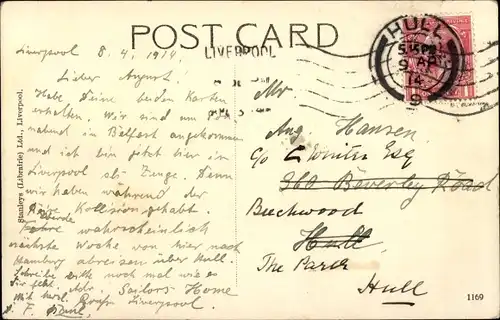 POST CARD
LIVERPOOL
HULL
5.15 PM
9 AP
14
Liverpool 8.4.1914.
Lieber August!
Habe Deine beiden Karten
erhalten. Wir sind am
abend in Belfast angekommen
und ich bin jetzt hier in
Liverpool als Zeuge. Denn
wir haben während der
Kollision gehabt.
Werde
wahrscheinlich
nächste Woche von hier nach
Hamburg abreisen über Hull.
Schreibe bitte noch mal wie es
Dir geht. Adr. Sailors Home
Mit herzl. Gruß Liverpool.
Mr
Aug. Hansen
c/o C Winter Esq
360 Beverley Road
Beechwood
Hull
The Park
Hull
Stanleys (Librairie) Ltd., Liverpool.
1169